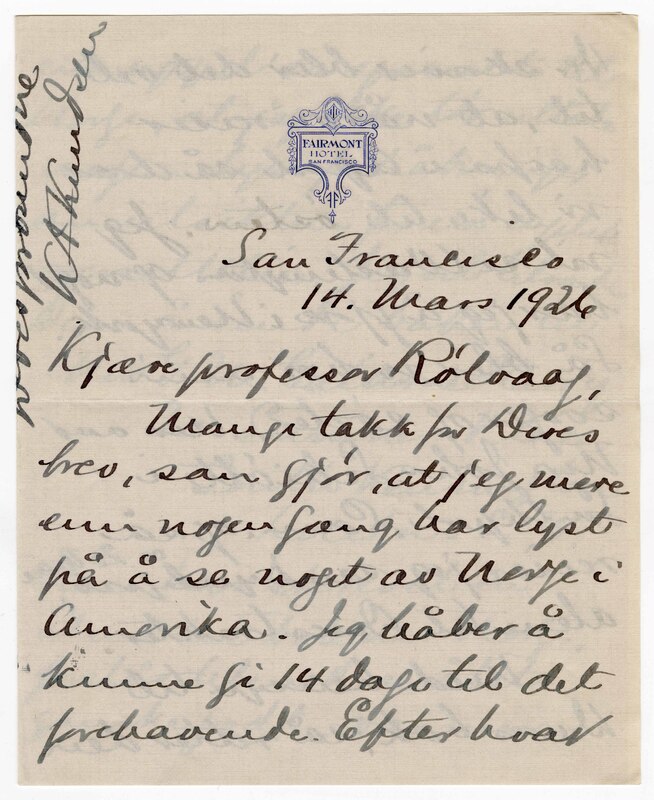 FAIRMONT
HOTEL
SAN FRANCISCO
San Francisco
14. Mars 1926
Kjære professor Rölvaag,
Mange takk for Deres
brev, som gjör, at jeg mere
enn nogen gang har lyst
på å se noget av Norge i
Amerika. Jeg håber å
kunne gi 14 dage til det
forehavende. Efter hvar